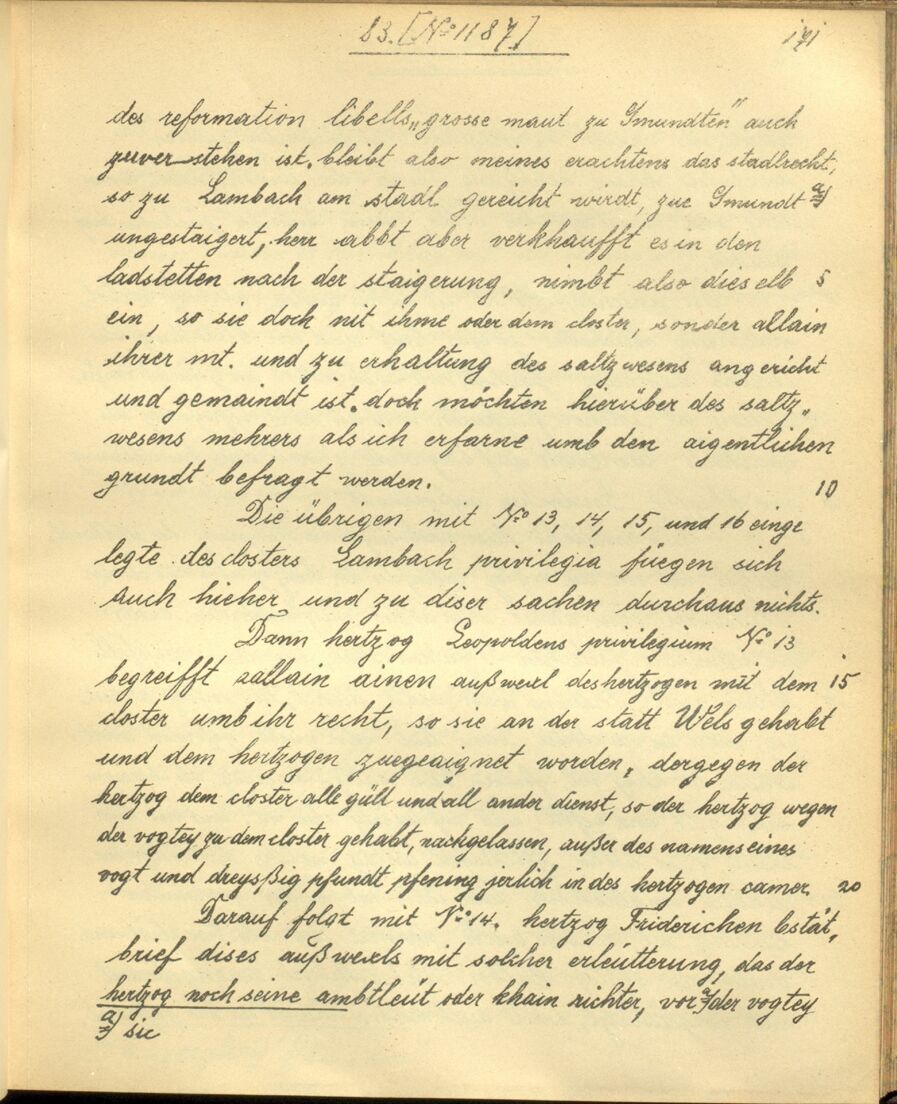 83. [No 1187] 171
des reformation libells „grosse maut zu Gmundten" auch
zuver stehen ist. bleibt also meines erachtens das stadlrecht,
so zu Lambach am stadl gereicht wirdt, zue Gmundt a)
ungestaigert, herr abbt aber verkhaufft es in den
ladstetten nach der staigerung, nimbt also dieselb 5
ein, so sie doch nit ihme oder dem closter, sonder allain
ihrer mt. und zu erhaltung des saltzwesens angericht
und gemaindt ist. doch möchten hierüber des saltz„
wesens mehrers als ich erfarne umb den aigentlichen
grundt befragt werden. 10
Die übrigen mit No 13, 14, 15, und 16 einge
legte des closters Lambach privilegia füegen sich
auch hieher und zu diser sachen durchaus nichts.
Dann hertzog Leopoldens privilegium No 13
begreifft allain ainen außwexl des hertzogen mit dem 15
closter umb ihr recht, so sie an der statt Wels gehabt
und dem hertzogen zuegeaignet worden, dergegen der
hertzog dem closter alle güll und all ander dienst, so der hertzog wegen
der vogtey zu dem closter gehabt, nachgelassen, außer des namens eines
vogt und dreyßig pfundt pfening jerlich in des hertzogen camer. 20
Darauf folgt mit No 14. hertzog Friderichen bstät„
brief dises außwexls mit solcher erleütterung, das der
hertzog noch seine ambtleüt oder khain richter, vor a) der vogtey
a) sic